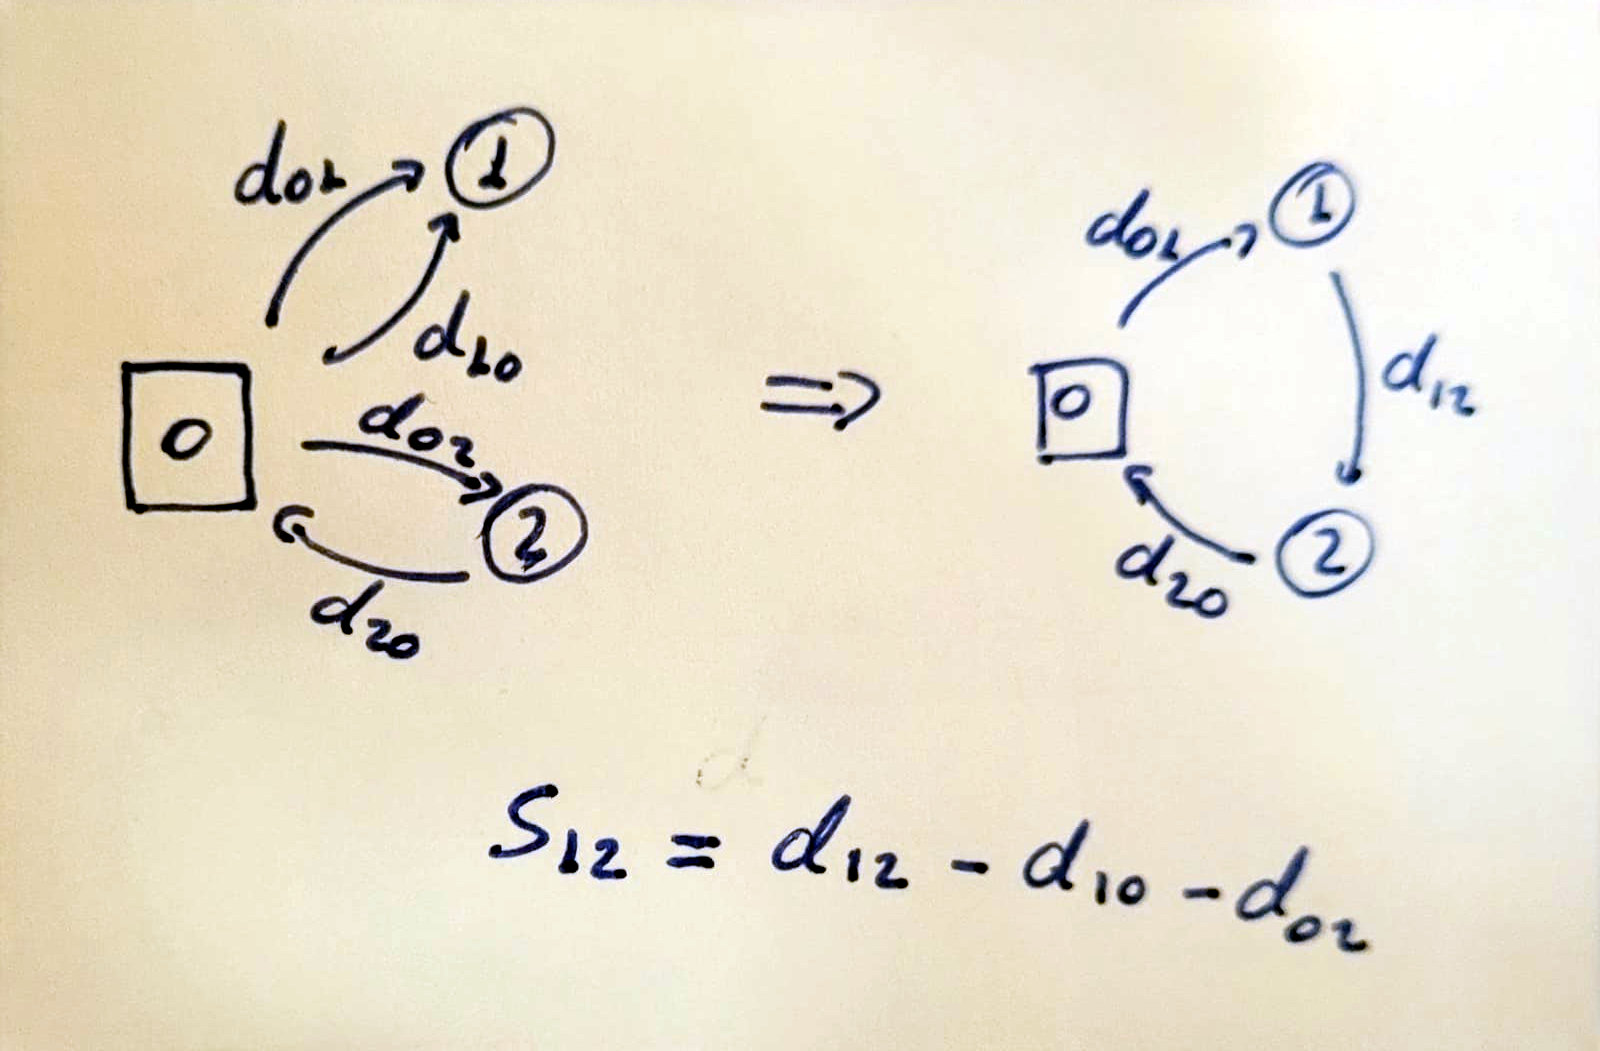 d01
1
d10
0
d02
2
d20
⇒
d01
1
0
d12
2
d20
d
S12 = d12 - d10 - d02